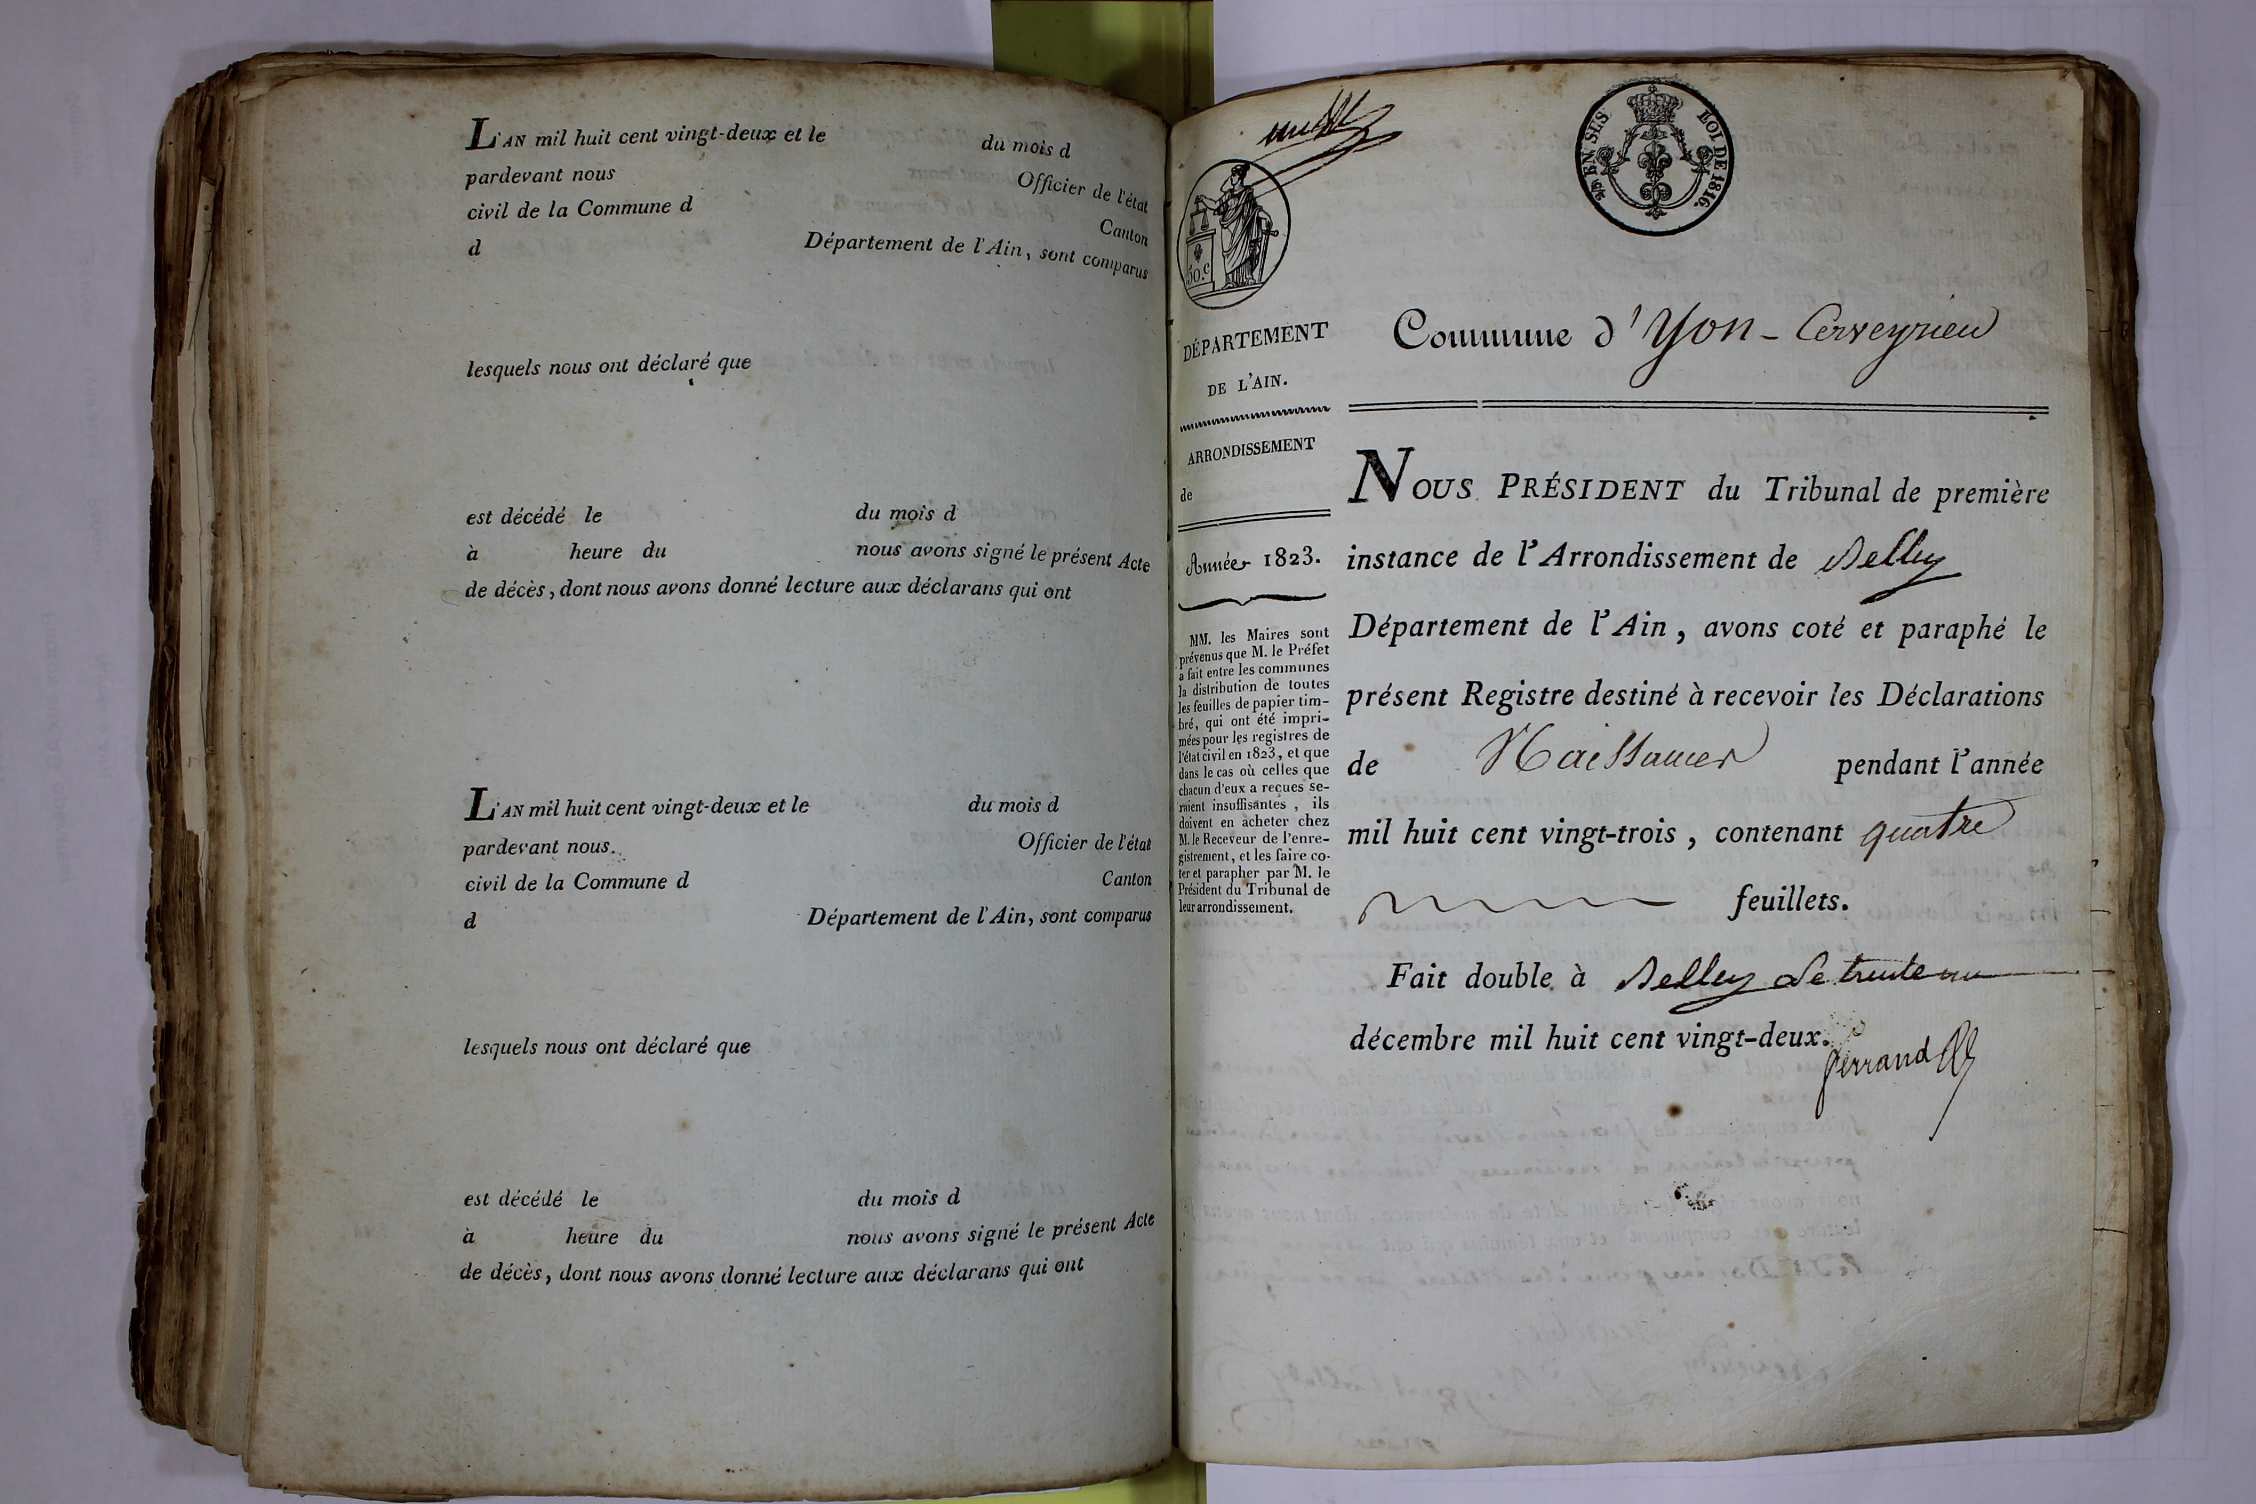 L'AN mil huit cent vingt-deux et le du mois d
pardevant nous Officier de l'état
civil de la Commune d Canton
d Département de l'Ain, sont comparus
lesquels nous ont déclaré que
est décédé le du mois d
à heure du nous avons signé le présent Acte
de décès, dont nous avons donné lecture aux déclarans qui ont
L'AN mil huit cent vingt-deux et le du mois d
pardevant nous. Officier de l'état
civil de la Commune d Canton
d Département de l'Ain, sont comparus
lesquels nous ont déclaré que
est décédé le du mois d
à heure du nous avons signé le présent Acte
de décès, dont nous avons donné lecture aux déclarans qui ont
EN SUS
LOI DE 1816.
50.c
DÉPARTEMENT
DE L'AIN.
ARRONDISSEMENT
de
Année 1823.
MM. les Maires sont
prévenus que M. le Préfet
a fait entre les communes
la distribution de toutes
les feuilles de papier tim-
bré, qui ont été impri-
mées pour les registres de
l'état civil en 1823, et que
dans le cas où celles que
chacun d'eux a reçues se-
raient insuffisantes, ils
doivent en acheter chez
M. le Receveur de l'enre-
gistrement, et les faire co-
ter et parapher par M. le
Président du Tribunal de
leur arrondissement.
Commune d'Yon-Cerveyrieu
NOUS PRÉSIDENT du Tribunal de première
instance de l'Arrondissement de Belley
Département de l'Ain, avons coté et paraphé le
présent Registre destiné à recevoir les Déclarations
de Naissances pendant l'année
mil huit cent vingt-trois, contenant quatre
feuillets.
Fait double à Belley le trente un
décembre mil huit cent vingt-deux.
Ferrand